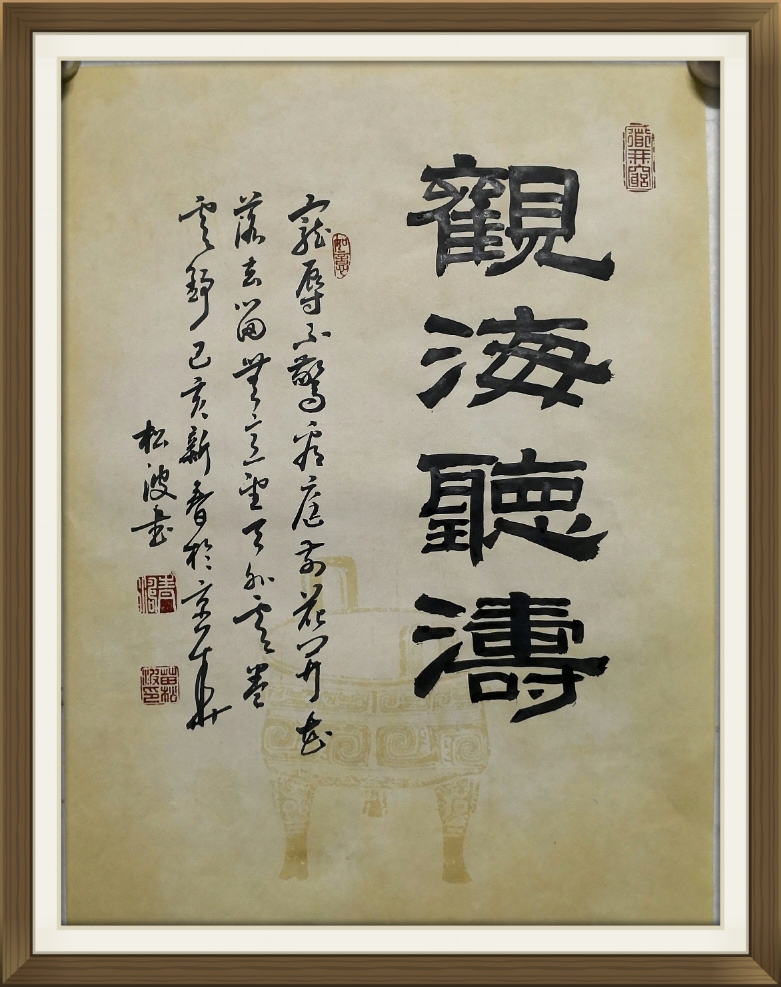 觀海聽濤
寵辱不驚看庭前花開花
落去留無意望天外雲卷
雲舒己亥新春於京華
松波書
如意
苗松波印